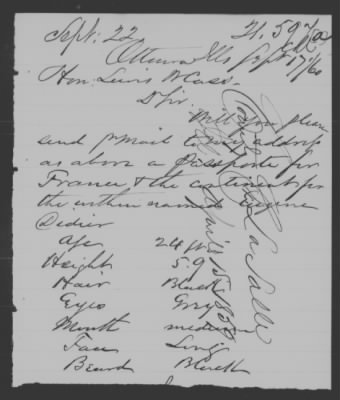 Sept. 22
Ottawa Ills Sept 17/60
Hon. Lewis Cass.
D Sir.
Will you please
send pr Mail to my address
as above a Passport for
France & the continent for
the within named Eugene
Didier
Age 24 yrs
Height 5.9
Hair Black
Eyes Grey
Mouth medium
Face Long
Beard Black
La Salle